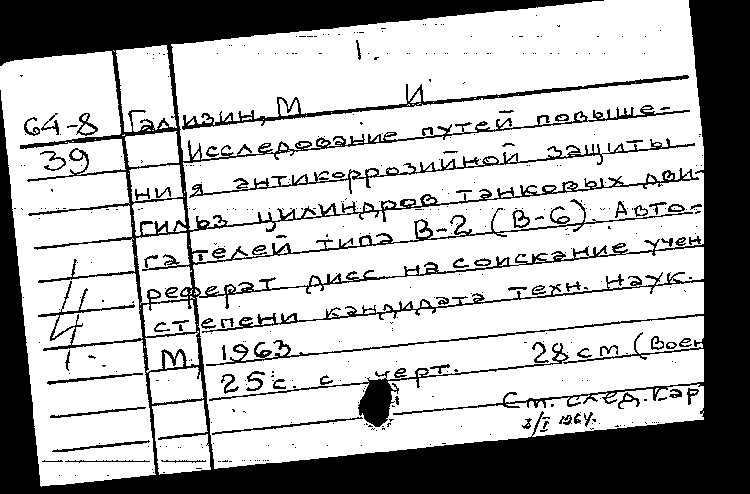 1.
64-8 Гализин, М И
39 Исследование путей повыше-
ния антикоррозийной защиты
гильз цилиндров танковых дви-
гателей типа В-2 (В-6). Авто-
реферат дисс на соискание учен
степени кандидата техн. наук.
М. 1963.
25 с. с черт. 28 см (Воен
См. след. кар
3/I 1964.
4